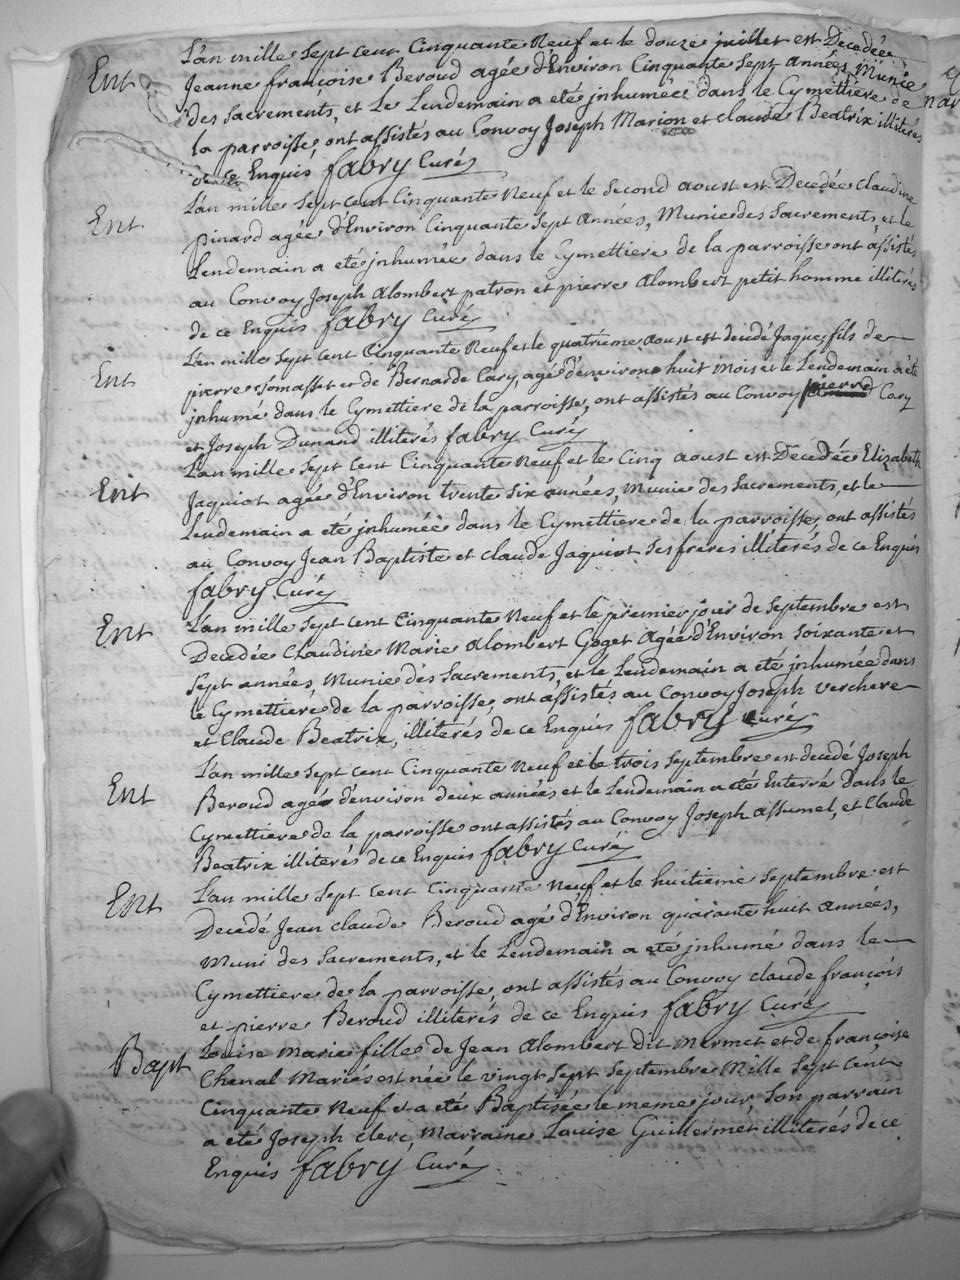 Ent
L'an mille Sept cent Cinquante Neuf et le douze juillet est Decedée
Jeanne françoise Beroud agée d'Environ Cinquante Sept années, Munie
des Sacrements, et Le Lendemain a eté jnhumée dans le Cymettiere de
la parroisse, ont assistés au Convoy Joseph Marion et claude Beatrix illiterés
de ce Enquis fabry Curé
Ent
L'an mille Sept Cent Cinquante Neuf et le Second aoust est Decedée Claudine
pinard agée d'Environ Cinquante Sept Années, Munie des Sacrements, et le
Lendemain a eté jnhumée dans le Cymettiere de la parroisse ont assistés
au Convoy Joseph alombert patron et pierre alombert petit homme illiterés
de ce Enquis fabry Curé
Ent
L'an mille Sept Cent Cinquante Neuf et le quatrieme aoust est decedé Jaques fils de
pierre et de Bernarde Cary, agé d'environ huit mois et le Lendemain a eté
jnhumé dans le Cymettiere de la parroisse, ont assistés au Convoy pierre Cary
et Joseph Dunand illiterés fabry Curé
Ent
L'an mille Sept Cent Cinquante Neuf et le Cinq aoust est Decedée Elizabeth
Jaquiot agée d'Environ trente Six années, Munie des Sacrements, et le
Lendemain a eté jnhumée dans le Cymettiere de la parroisse, ont assistés
au Convoy Jean Baptiste et claude Jaquiot Ses freres illiterés de ce Enquis
fabry Curé
Ent
L'an mille Sept Cent Cinquante Neuf et le premier jour de Septembre est
Decedée Claudine Marie alombert Goget Agée d'Environ Soixante et
Sept années, Munie des Sacrements, et le Lendemain a eté jnhumée dans
le Cymettiere de la parroisse, ont assistés au Convoy Joseph Verchere
et Claude Beatrix, illiterés de ce Enquis fabry Curé
Ent
L'an mille Sept Cent Cinquante Neuf et le trois Septembre est decedé Joseph
Beroud agé d'environ deux années et le Lendemain a eté Enterré Dans le
Cymettiere de la parroisse ont assistés au Convoy Joseph assumel, et Claude
Beatrix illiterés de ce Enquis fabry Curé
Ent
L'an mille Sept Cent Cinquante Neuf et le huitieme Septembre est
Decedé Jean claude Beroud agé d'Environ quarante huit années,
Muni des Sacrements, et le Lendemain a eté jnhumé dans le
Cymettiere de la parroisse, ont assistés au Convoy claude françois
et pierre Beroud illiterés de ce Enquis fabry Curé
Bapt
Louise marie fille de Jean alombert dit mermet et de françoise
Chenal Mariés est née le vingt Sept Septembre Mille Sept Cent
Cinquante Neuf et a eté Baptisée le meme jour, Son parrain
a eté Joseph clerc, Marraine Louise Guillermet illiterés de ce
Enquis fabry Curé